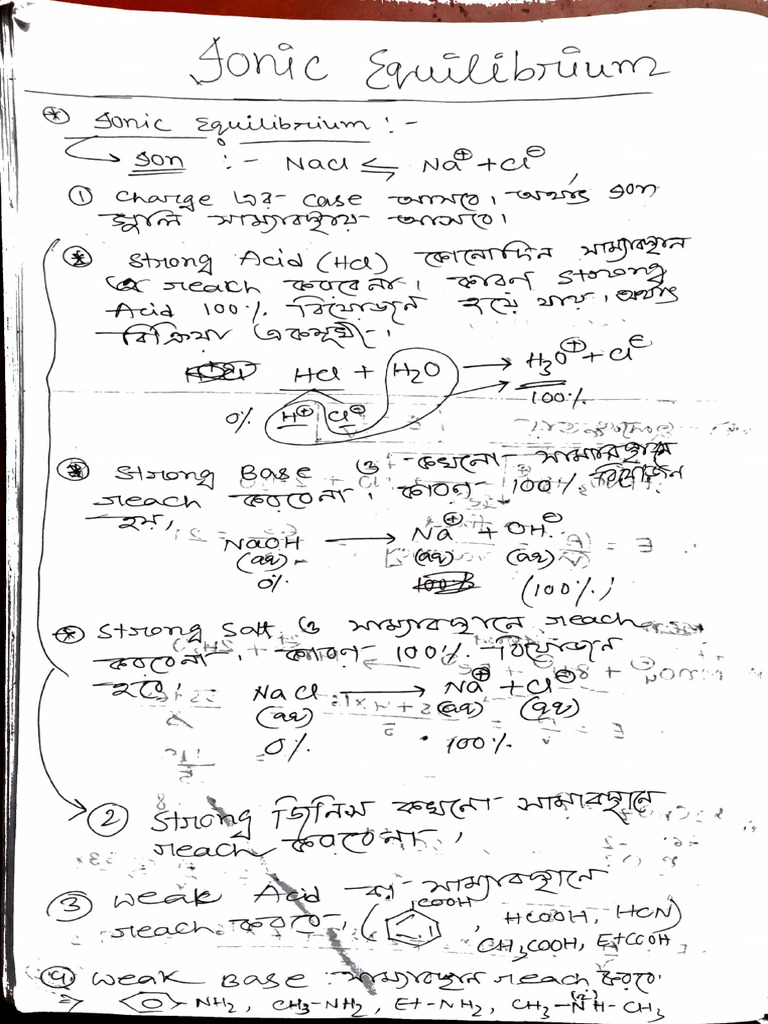 Ionic Equilibrium
* Ionic Equilibrium :-
→ Ion :- NaCl ⇌ Na⊕ + Cl⊖
① Charge এর case আসবে। অর্থাৎ Ion
গুলি সাম্যাবস্থায় আসবে।
* Strong Acid (HCl) কোনোদিন সাম্যাবস্থান
এ reach করবেনা। কারণ strong
Acid 100% বিয়োজন হয়ে যায়। অর্থাৎ
বিক্রিয়া একমুখী।
HCl + H2O → H3O⊕ + Cl⊖
0% H⊕ Cl⊖ 100%
* Strong Base ও কখনো সাম্যাবস্থানে
reach করবেনা। কারণ 100% বিয়োজন
হয়।
NaOH → Na⊕ + OH⊖
(aq) (aq) (aq)
0% (100%)
* Strong Salt ও সাম্যাবস্থানে reach
করবেনা। কারণ 100% বিয়োজন
হবে।
NaCl → Na⊕ + Cl⊖
(aq) (aq) (aq)
0% 100%
② Strong জিনিস কখনো সাম্যাবস্থানে
reach করবেনা।
③ Weak Acid সাম্যাবস্থানে
reach করবে। (COOH, HCOOH, HCN)
CH3COOH, EtCOOH
④ Weak Base সাম্যাবস্থান reach করবে
⇒ NH2, CH3-NH2, Et-NH2, CH3-NH-CH3
(2°)